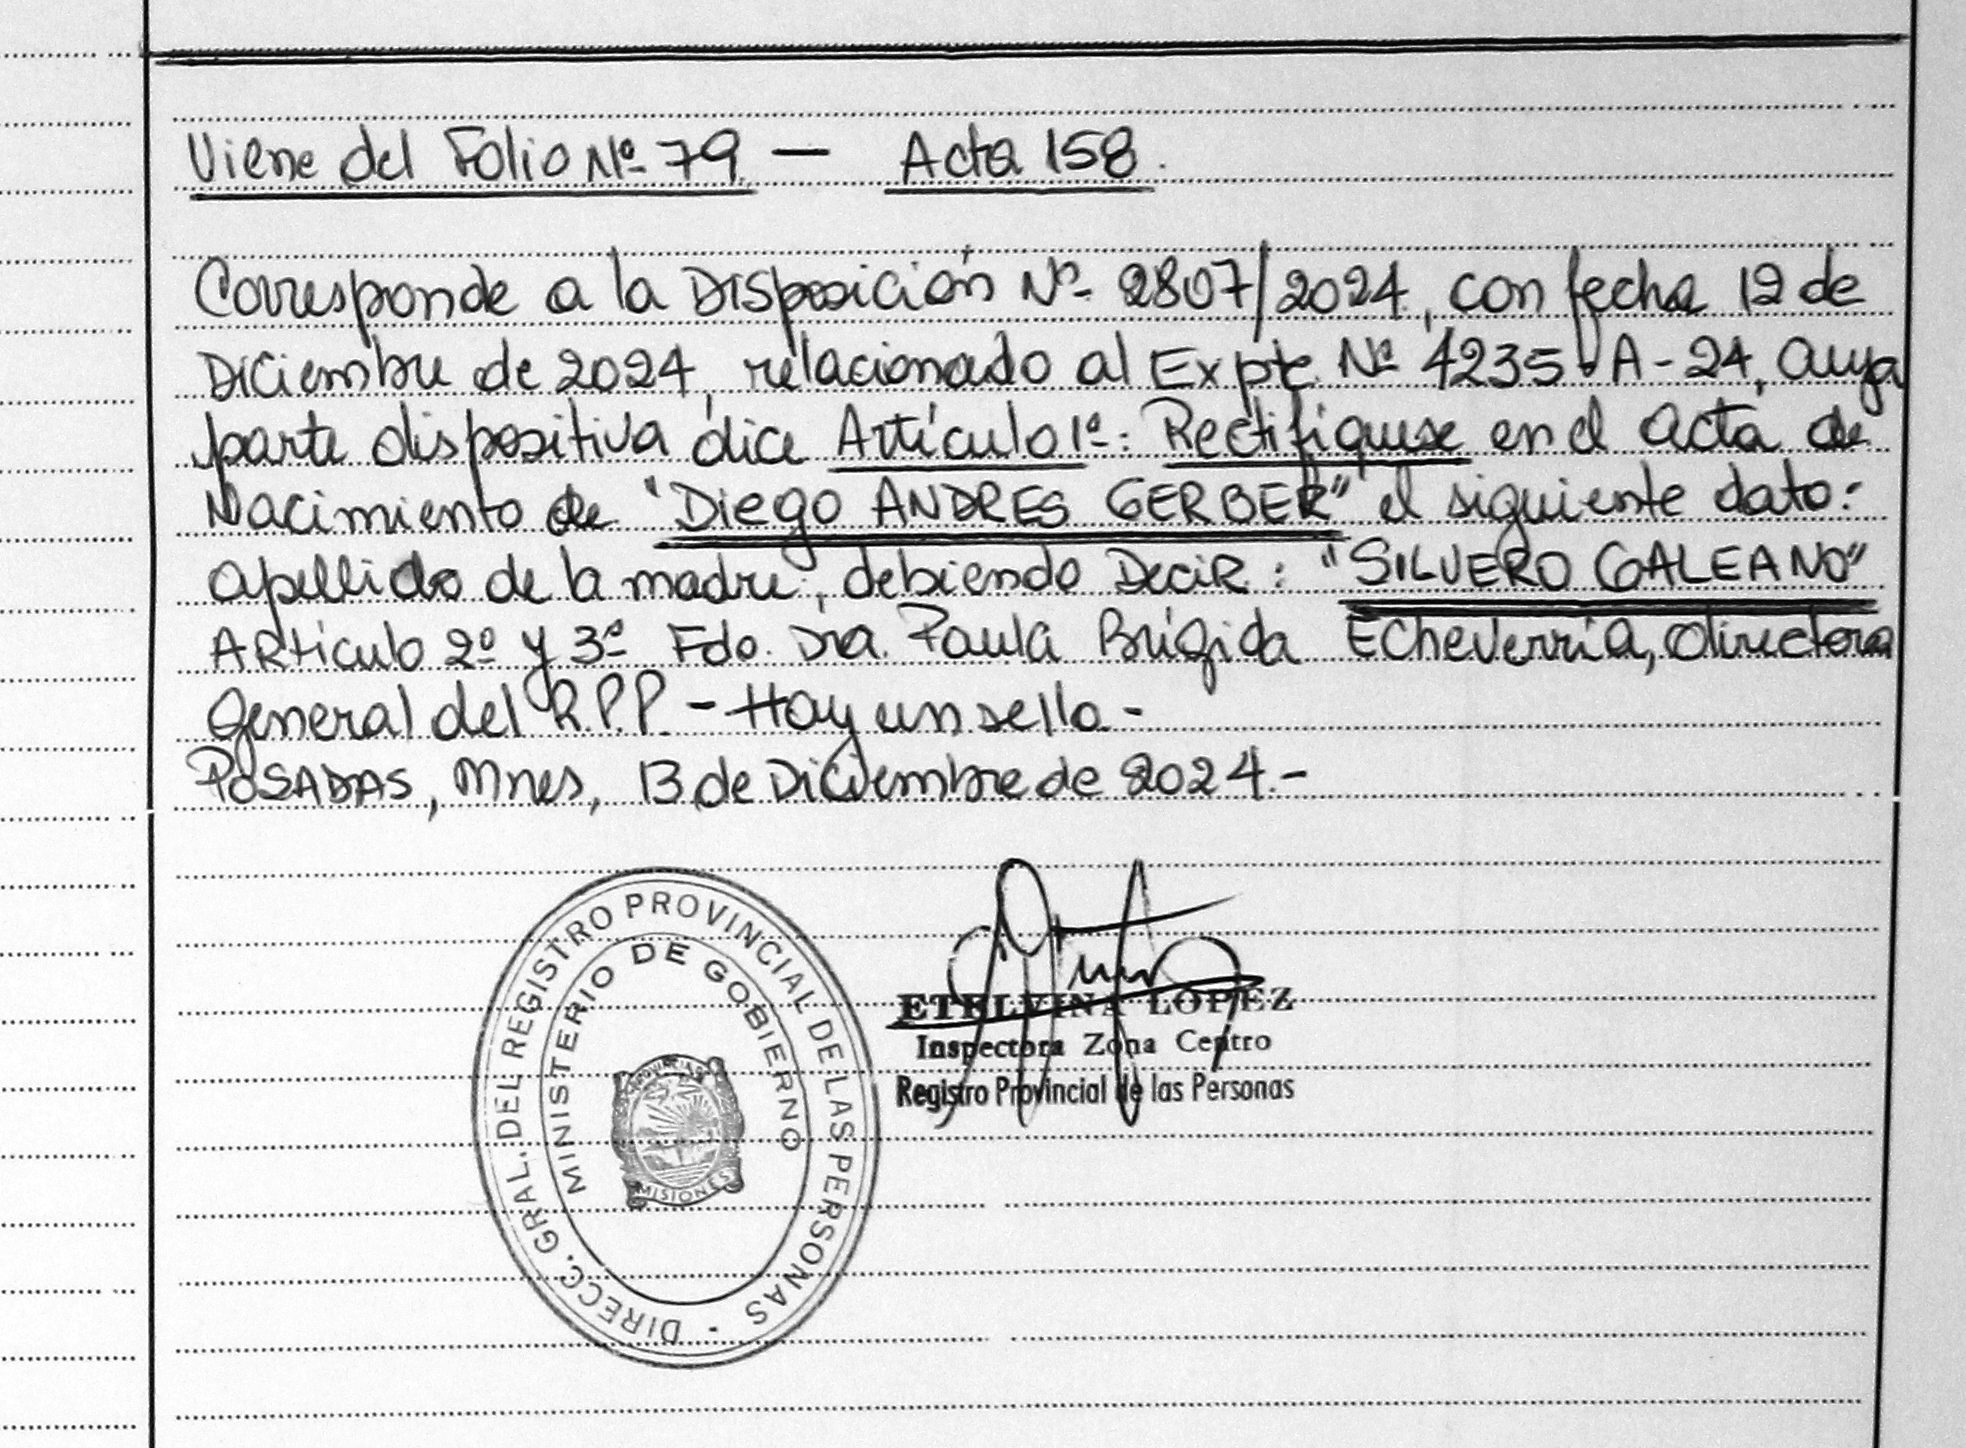 Viene del Folio Nº 79 — Acta 158.
Corresponde a la Disposición Nº 2807/2024, con fecha 12 de
Diciembre de 2024, relacionado al Expte Nº 4235-A-24, cuya
parte dispositiva dice Artículo 1º: Rectifíquese en el acta de
Nacimiento de "Diego ANDRES GERBER" el siguiente dato:
apellido de la madre, debiendo Decir: "SILVERO GALEANO"
Artículo 2º y 3º Fdo. Dra. Paula Brígida Echeverría, directora
General del R.P.P. - Hay un sello.-
POSADAS, Mnes, 13 de Diciembre de 2024.-
DIRECC. GRAL. DEL REGISTRO PROVINCIAL DE LAS PERSONAS -
MINISTERIO DE GOBIERNO
MISIONES
ETELVINA LOPEZ
Inspectora Zona Centro
Registro Provincial de las Personas